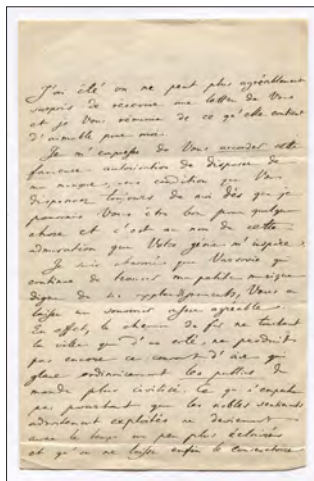 J'ai été on ne peut plus agréablement
surpris de recevoir une lettre de Vous
et je Vous remercie de ce qu'elle contient
d'aimable pour moi.
Je m'empresse de Vous accorder cette
fameuse autorisation de disposer de
ma musique, sous condition que Vous
disposerez toujours de moi dès que je
pourrais Vous être bon pour quelque
chose et c'est au nom de cette
admiration que Votre génie m'inspire.
Je suis charmé que Varsovie
continue de trouver ma petite musique
digne de ses applaudissements, Vous a
laissé un souvenir assez agréable.
En effet, le chemin de fer ne touchant
la ville que d'un côté, ne produit
pas encore ce courant d'air qui
glace ordinairement les publics du
monde plus civilisé. Ce qui n'empêche
pas pourtant que les nobles
adroitement exploités ne deviennent
avec le temps un peu plus éclairés
et qu'on ne laisse enfin le conservatoire